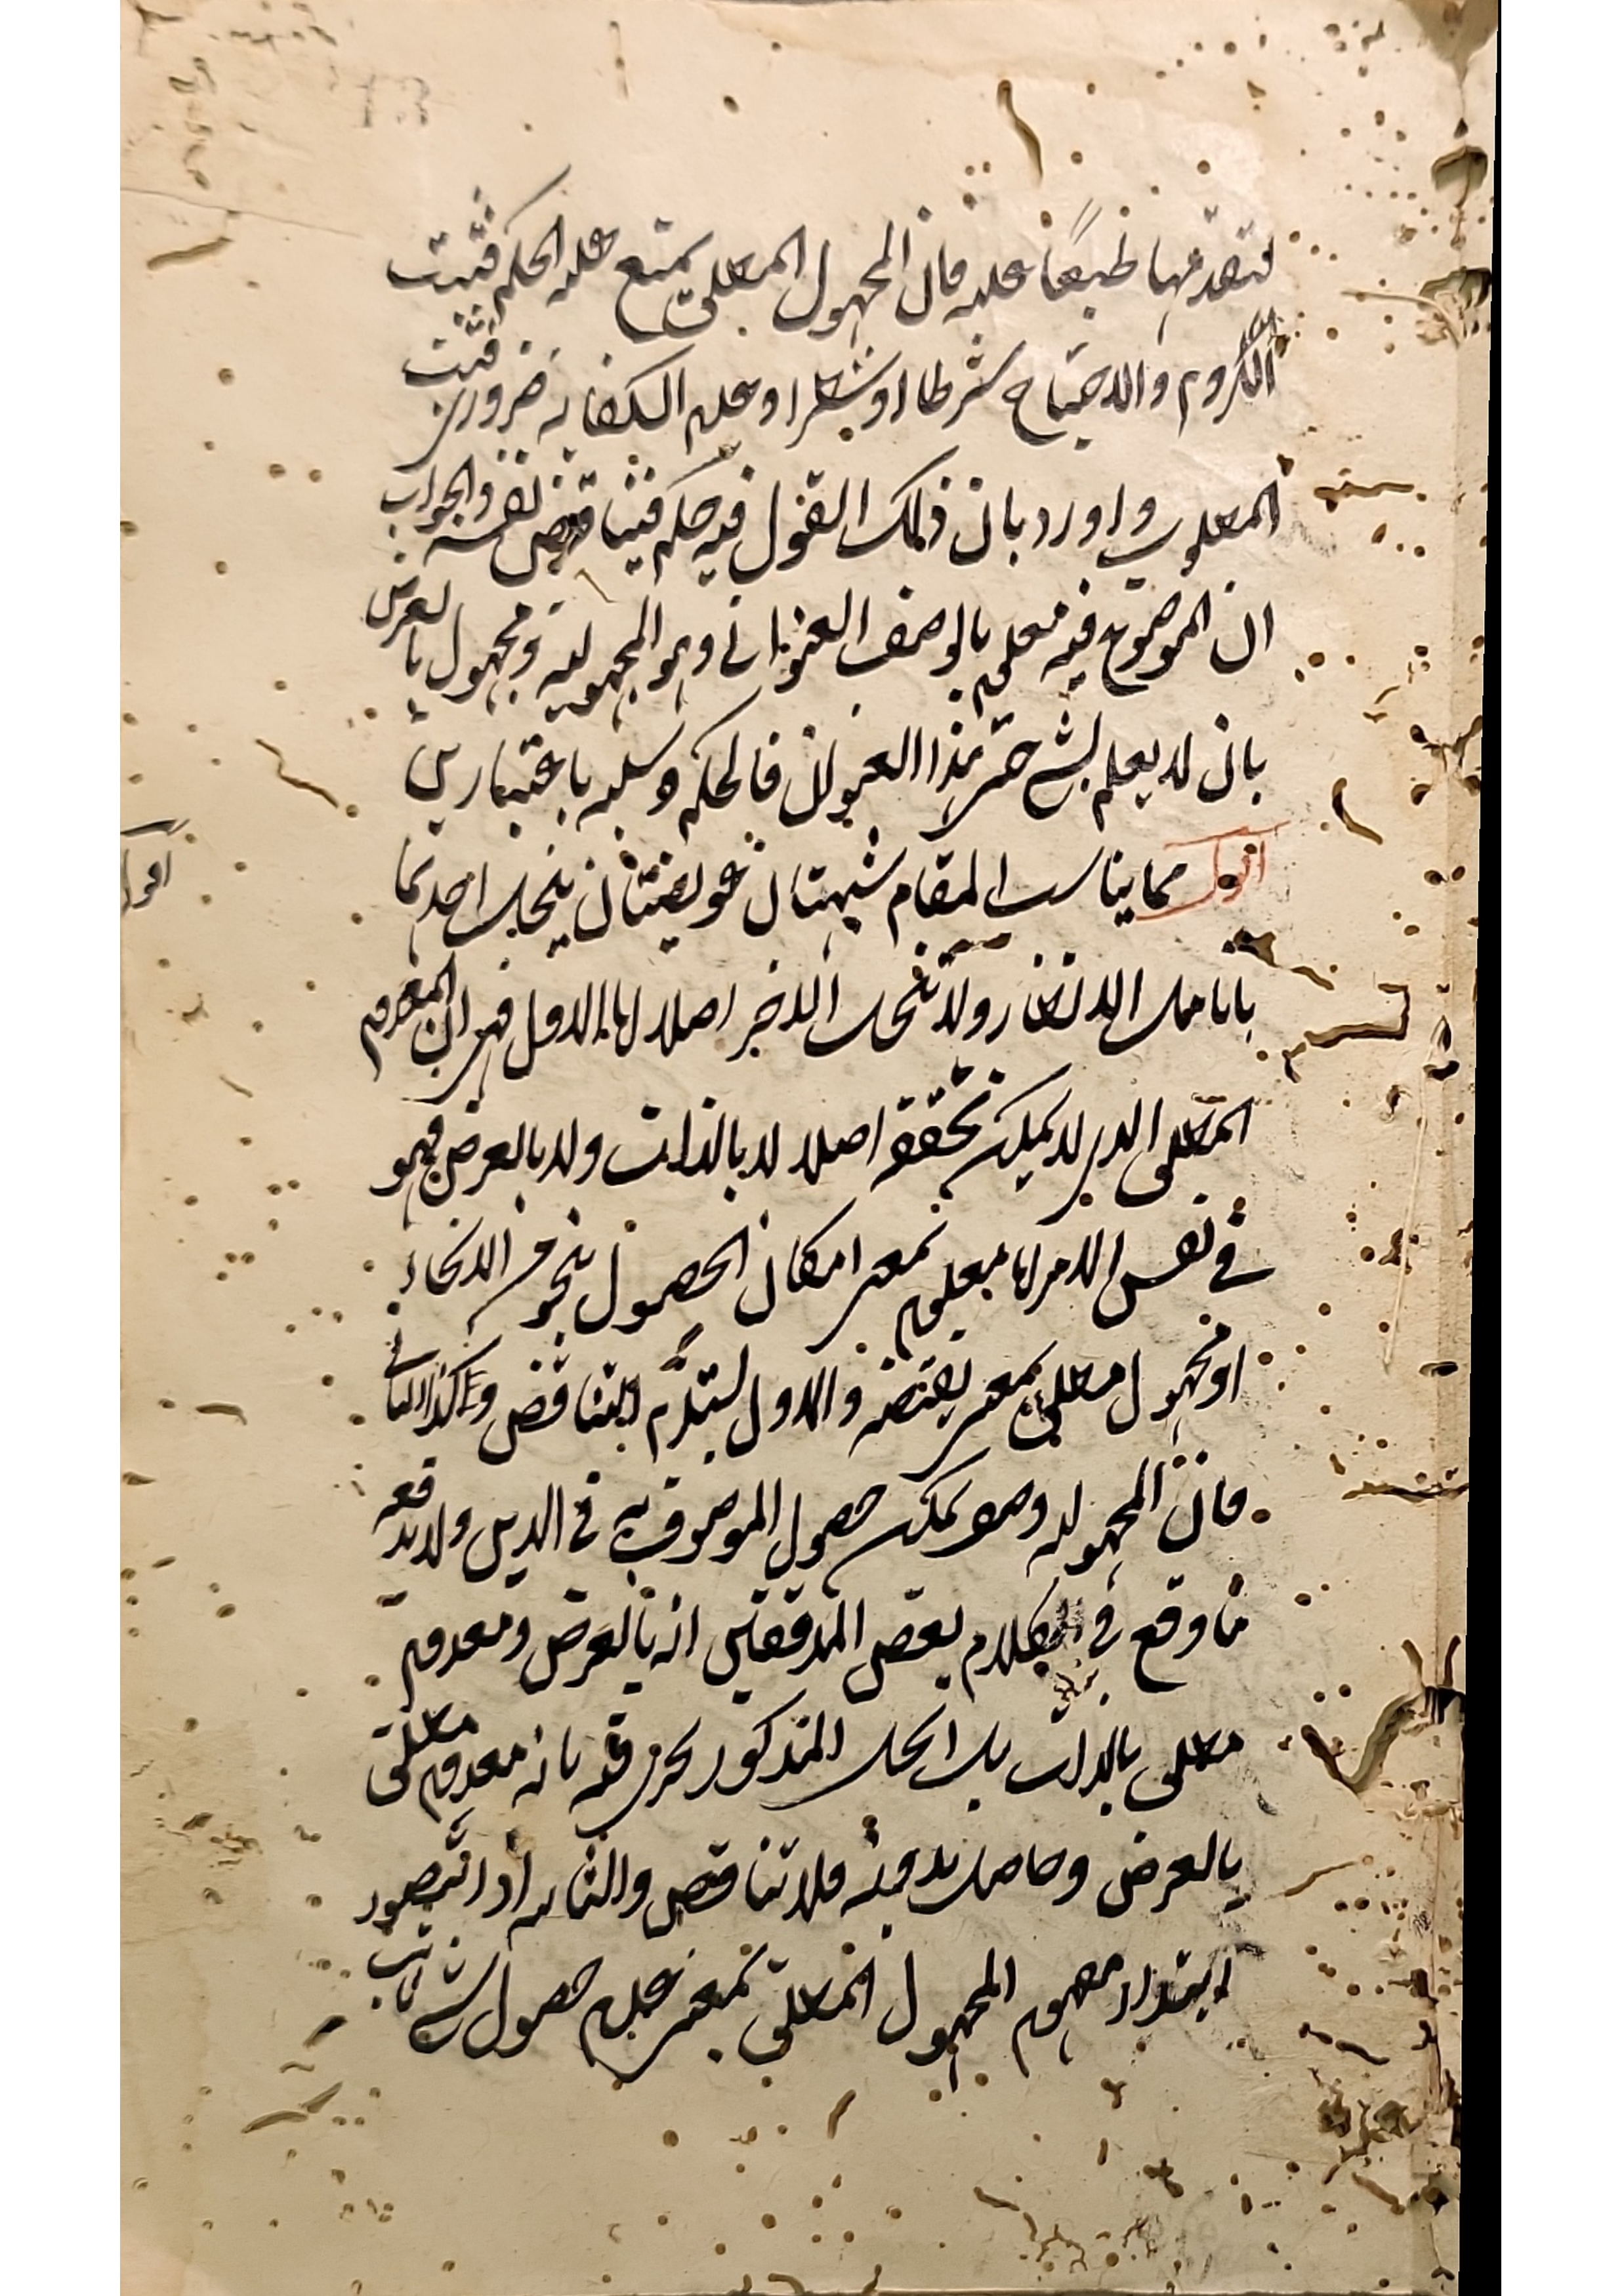 لتقدمها طبعًا عليه فان المجهول المطلق يمتنع عليه الحكم فثبت
اللزوم والاحتياج شرطا او شطرا وعلم الكفاية ضروري فثبت
المطلوب واورد بان ذلك القول فيه حكم فيناقض نفسه والجواب
ان الموضوع فيه معلوم بالوصف العنواني وهو المجهولية ومجهول بالفرض
بان لا يعلم بشيء حتى بهذا العنوان فالحكم وسلبه باعتبارين
اقول مما يناسب المقام شبهتان عويصتان ينحل احدهما
بتامل الانظار ولا تنحل الاخر اصلا اما الاول فهي ان المعدوم
المطلق الذي لا يمكن تحققه اصلا لا بالذات ولا بالعرض فهو
في نفس الامر اما معلوم بمعنى امكان الحصول بنحو من الانحاء
او مجهول مطلق بمعنى نقيضه والاول يستلزم التناقض وكذا الثاني
فان المجهولية وصف يمكن حصول الموصوف به في الذهن ولا يدفعه
ما وقع في كلام بعض المدققين انه بالعرض ومعدوم
مطلق بالذات بل الحل المذكور يجري فيه بانه معدوم مطلق
بالعرض وحاصل بدونه فلا تناقض والثانية اذا تصور
ابتداء مفهوم المجهول المطلق بمعنى عدم حصول شيء
اقول